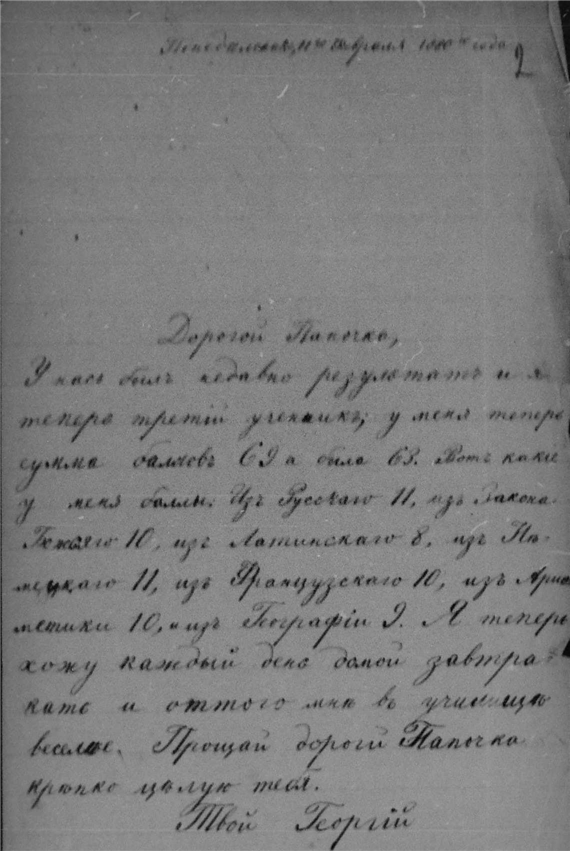 Понедельникъ, 11го Февраля 1880го года
2
Дорогой Папочка,
У насъ былъ недавно результатъ и я
теперь третій ученикъ; у меня теперь
сумма балловъ 69 а была 63. Вотъ какіе
у меня баллы: Изъ Русскаго 11, изъ Закона
Божьяго 10, изъ Латинскаго 8, изъ Нѣ-
мецкаго 11, изъ Французскаго 10, изъ Ариѳ
метики 10, и изъ Географіи 9. Я теперь
хожу каждый день домой завтра-
кать и оттого мнѣ въ училищѣ
веселѣе. Прощай дорогй Папочка
крѣпко цѣлую тебя.
Твой Георгій